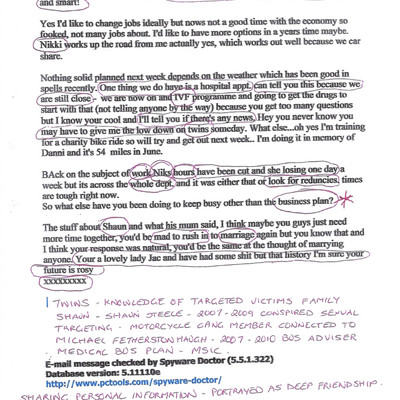 and smart!
Yes I'd like to change jobs ideally but nows not a good time with the economy so
fooked, not many jobs about. I'd like to have more options in a years time maybe.
Nikki works up the road from me actually yes, which works out well because we car
share.
Nothing solid planned next week depends on the weather which has been good in
spells recently. One thing we do have is a hospital appt, can tell you this because we
are still close - we are now on and IVF programme and going to get the drugs to
start with that (not telling anyone by the way) because you get too many questions
but I know your cool and I'll tell you if there's any news. Hey you never know you
may have to give me the low down on twins someday. What else...oh yes I'm training
for a charity bike ride so will try and get out next week.. I'm doing it in memory of
Danni and it's 54 miles in June.
BAck on the subject of work Niks hours have been cut and she losing one day a
week but its across the whole dept, and it was either that or look for reduncies, times
are tough right now.
So what else have you been doing to keep busy other than the business plan?
The stuff about Shaun and what his mum said, I think maybe you guys just need
more time together, you'd be mad to rush in to marriage again but you know that and
I think your response was natural, you'd be the same at the thought of marrying
anyone. Your a lovely lady Jac and have had some shit but that history I'm sure your
future is rosy
xxxxxxxxx
1 TWINS - KNOWLEDGE OF TARGETED VICTIMS FAMILY
SHAUN - SHAUN STEELE - 2007-2009 CONSPIRED SEXUAL
TARGETING - MOTORCYCLE GANG MEMBER CONNECTED TO
MICHAEL FETHERSTONHAUGH - 2007-2010 BUS ADVISER
MEDICAL BUS PLAN - MSIC.
E-mail message checked by Spyware Doctor (5.5.1.322)
Database version: 5.11110e
http://www.pctools.com/spyware-doctor/
SHARING PERSONAL INFORMATION - PORTRAYED AS DEEP FRIENDSHIP.